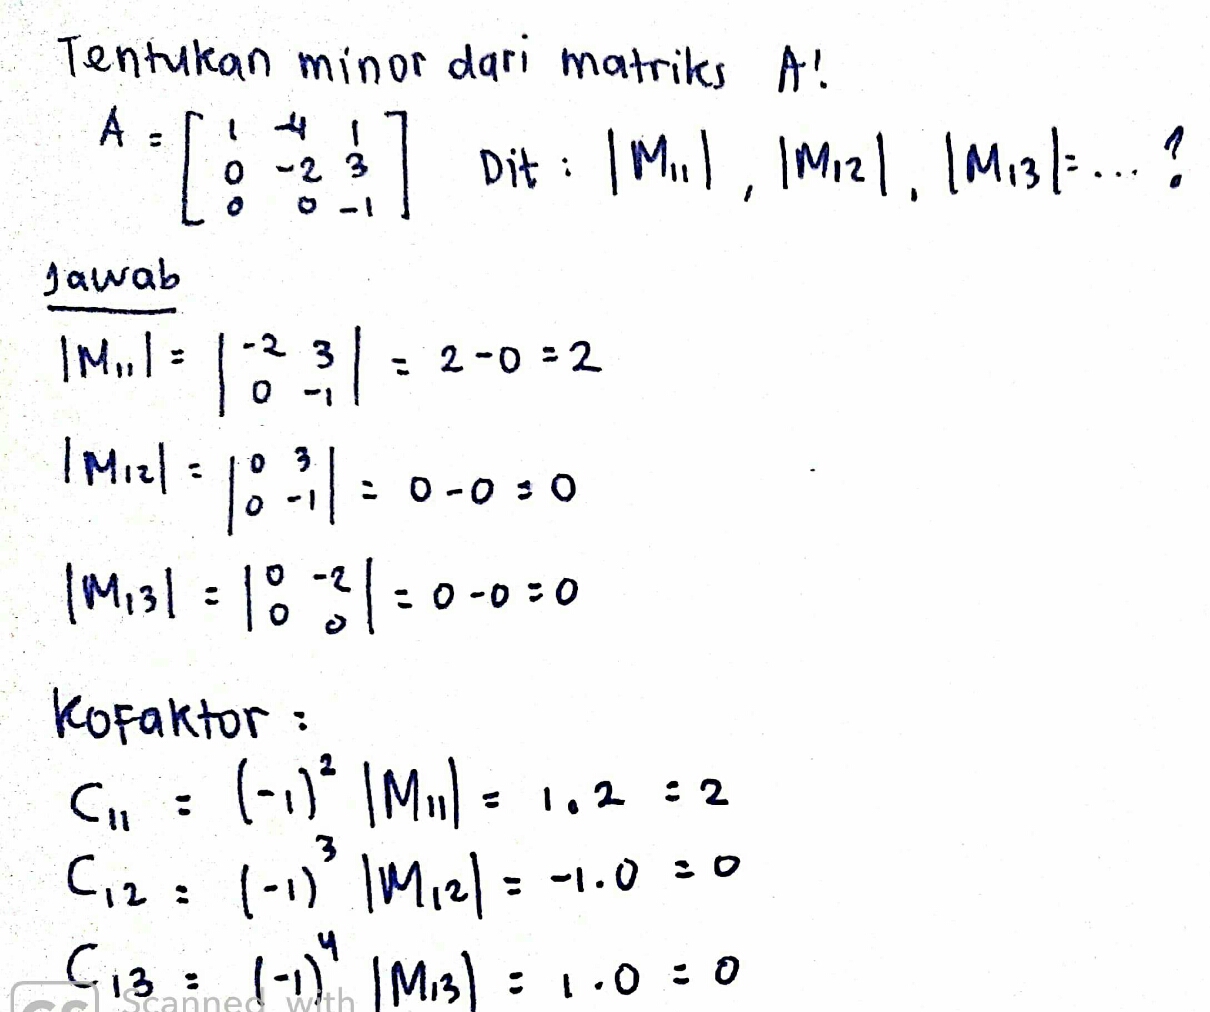 Tentukan minor dari matriks A!
A = [ 1 -4 1 ] Dit : |M₁₁|, |M₁₂|, |M₁₃| = ... ?
0 -2 3
0 0 -1
Jawab
|M₁₁| = | -2 3 | = 2 - 0 = 2
0 -1
|M₁₂| = | 0 3 | = 0 - 0 = 0
0 -1
|M₁₃| = | 0 -2 | = 0 - 0 = 0
0 0
Kofaktor :
C₁₁ = (-1)² |M₁₁| = 1.2 = 2
C₁₂ = (-1)³ |M₁₂| = -1.0 = 0
C₁₃ = (-1)⁴ |M₁₃| = 1.0 = 0
CS Scanned with